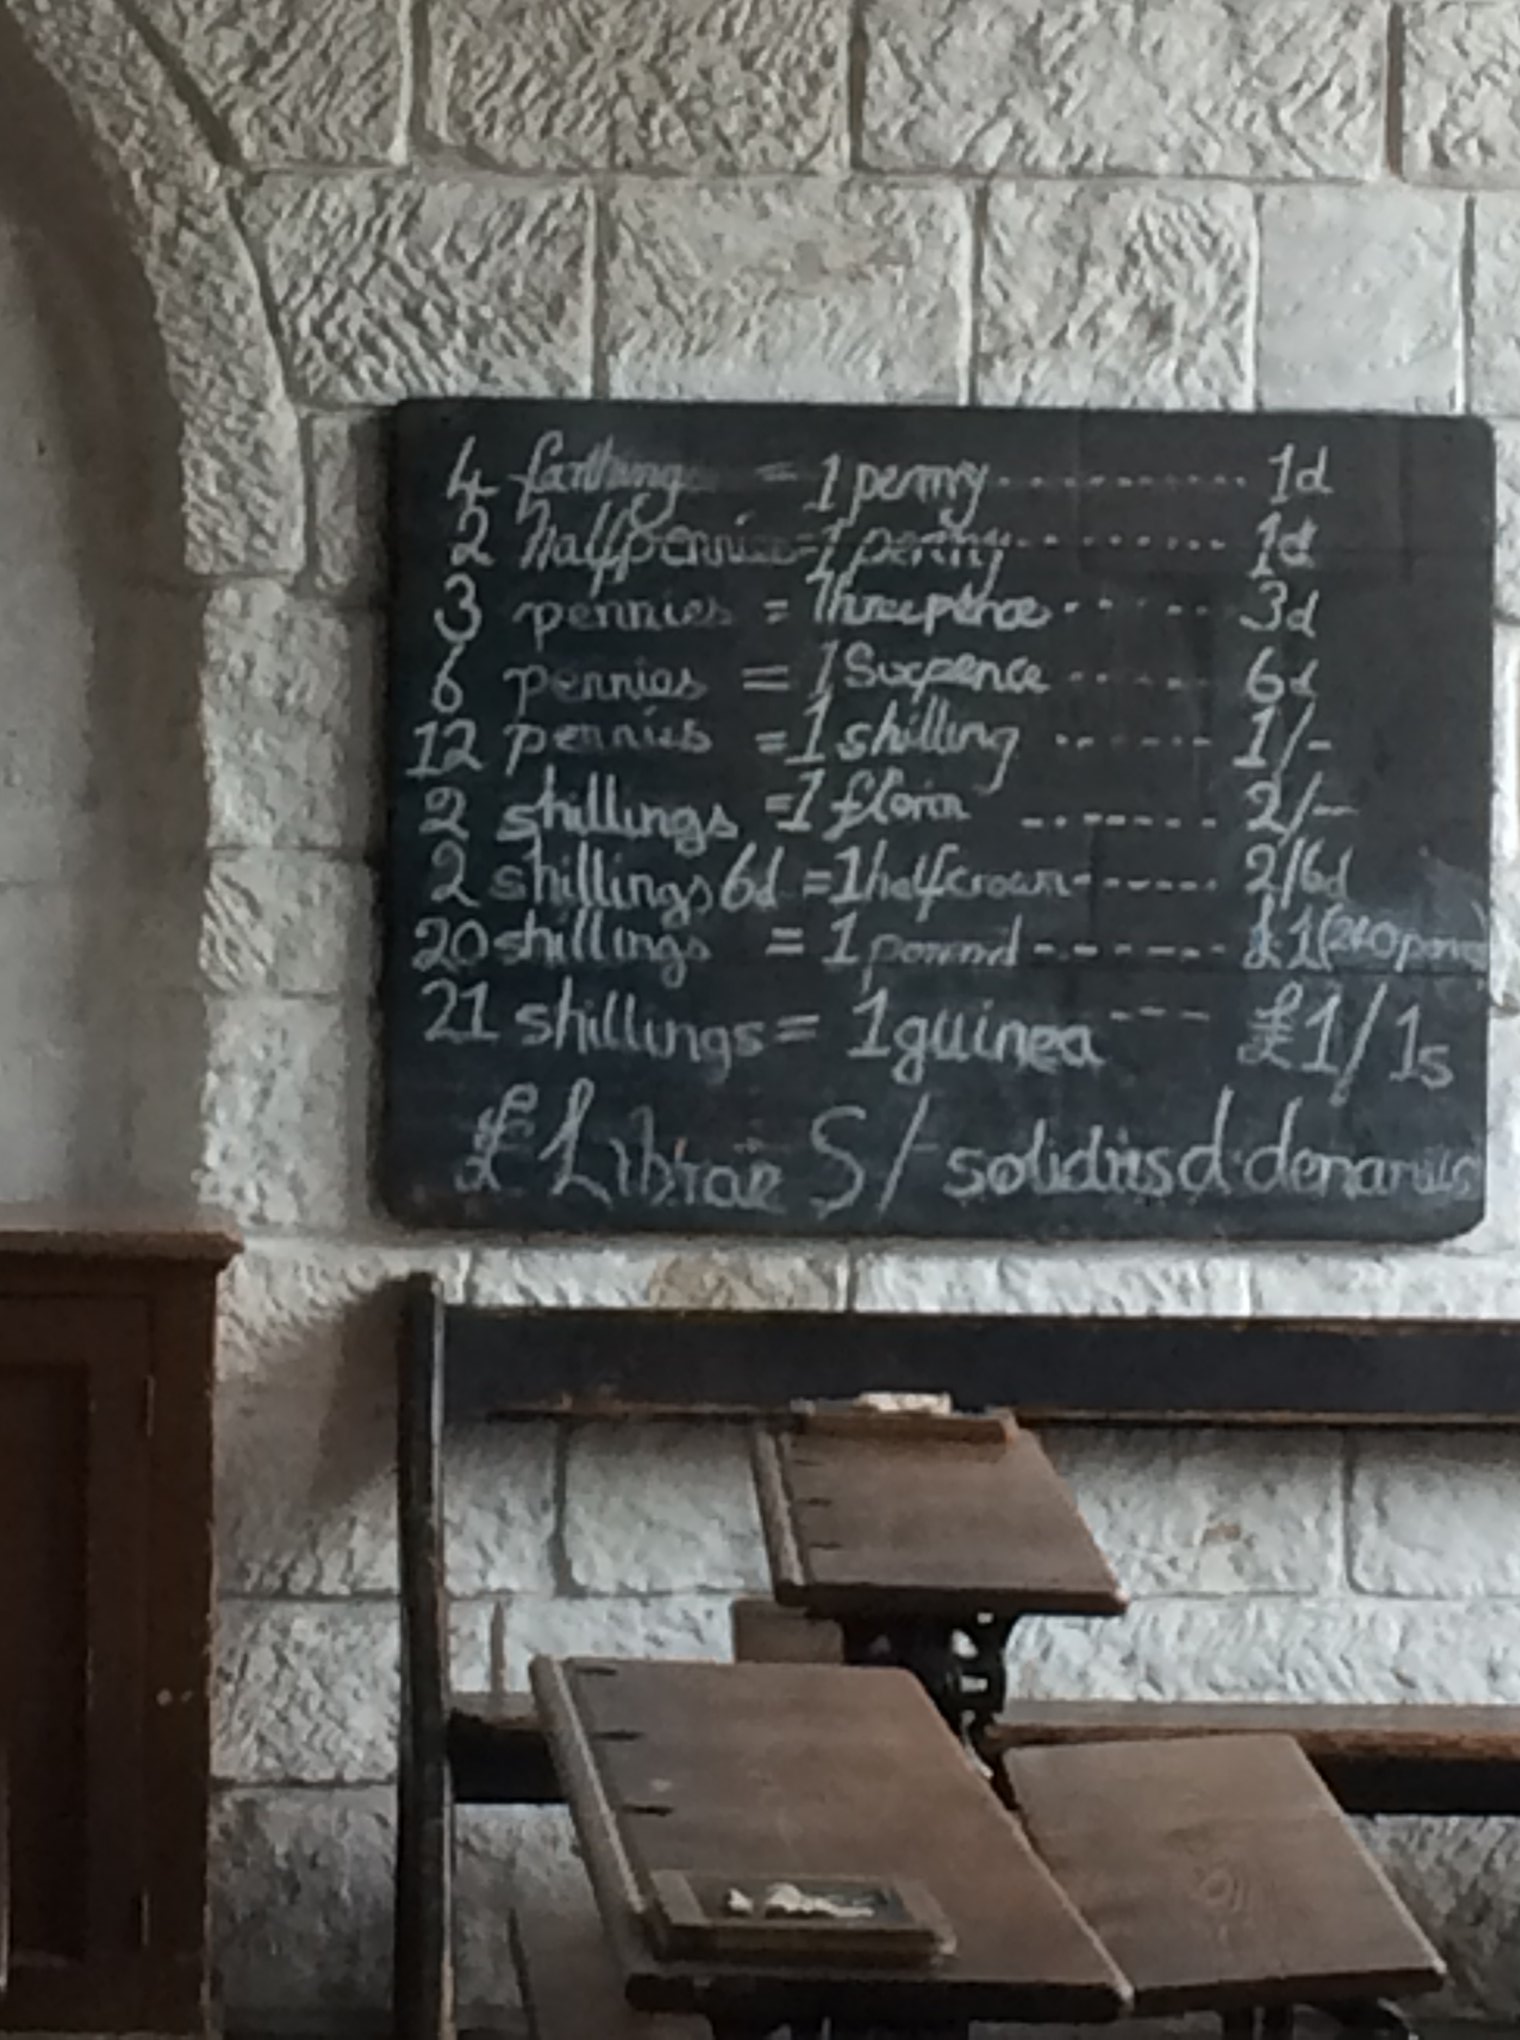 4 farthings = 1 penny ---------- 1d
2 halfpennies = 1 penny --------- 1d
3 pennies = Threepence ------ 3d
6 pennies = 1 Sixpence ------ 6d
12 pennies = 1 shilling ------- 1/-
2 shillings = 1 florin ------- 2/-
2 shillings 6d = 1 halfcrown ------ 2/6d
20 shillings = 1 pound ------- £1 (240 pence)
21 shillings = 1 guinea --- £1/1s
£ Librae S/ solidus d. denarius